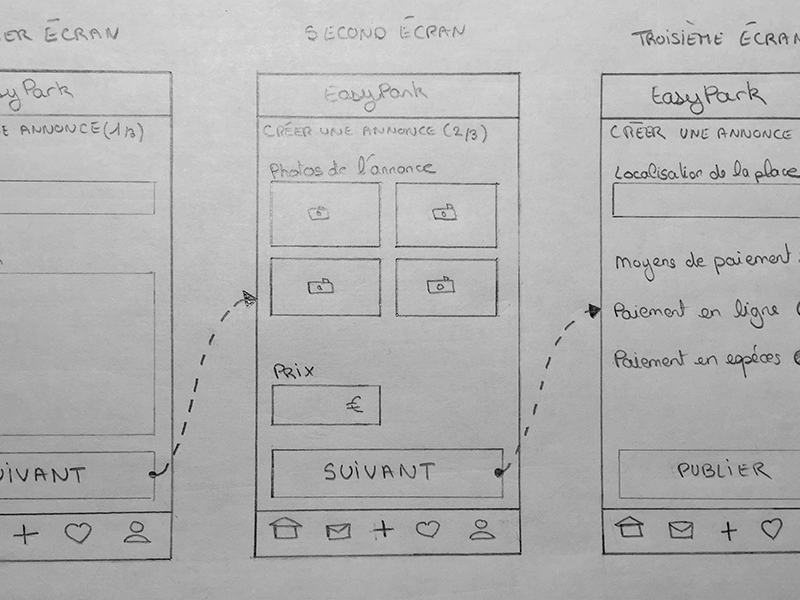 ER ÉCRAN
syPark
E ANNONCE (1/3)
UIVANT
SECOND ÉCRAN
EasyPark
CRÉER UNE ANNONCE (2/3)
Photos de l'annonce
Prix
€
SUIVANT
TROISIÈME ÉCRAN
EasyPark
CRÉER UNE ANNONCE
Localisation de la place
Moyens de paiement :
Paiement en ligne
Paiement en espéces
PUBLIER